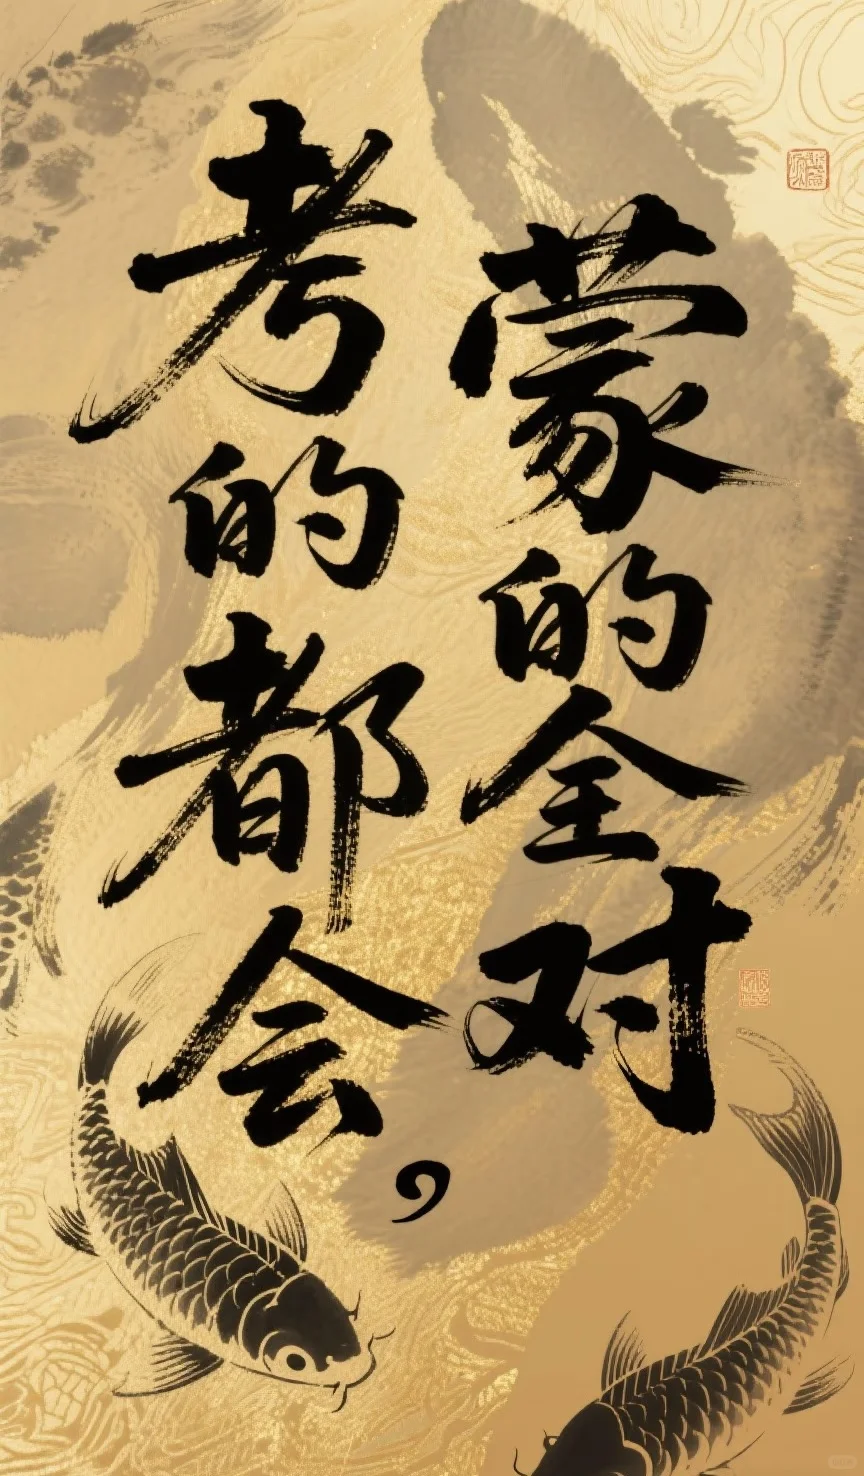 考的都会，
蒙的全对